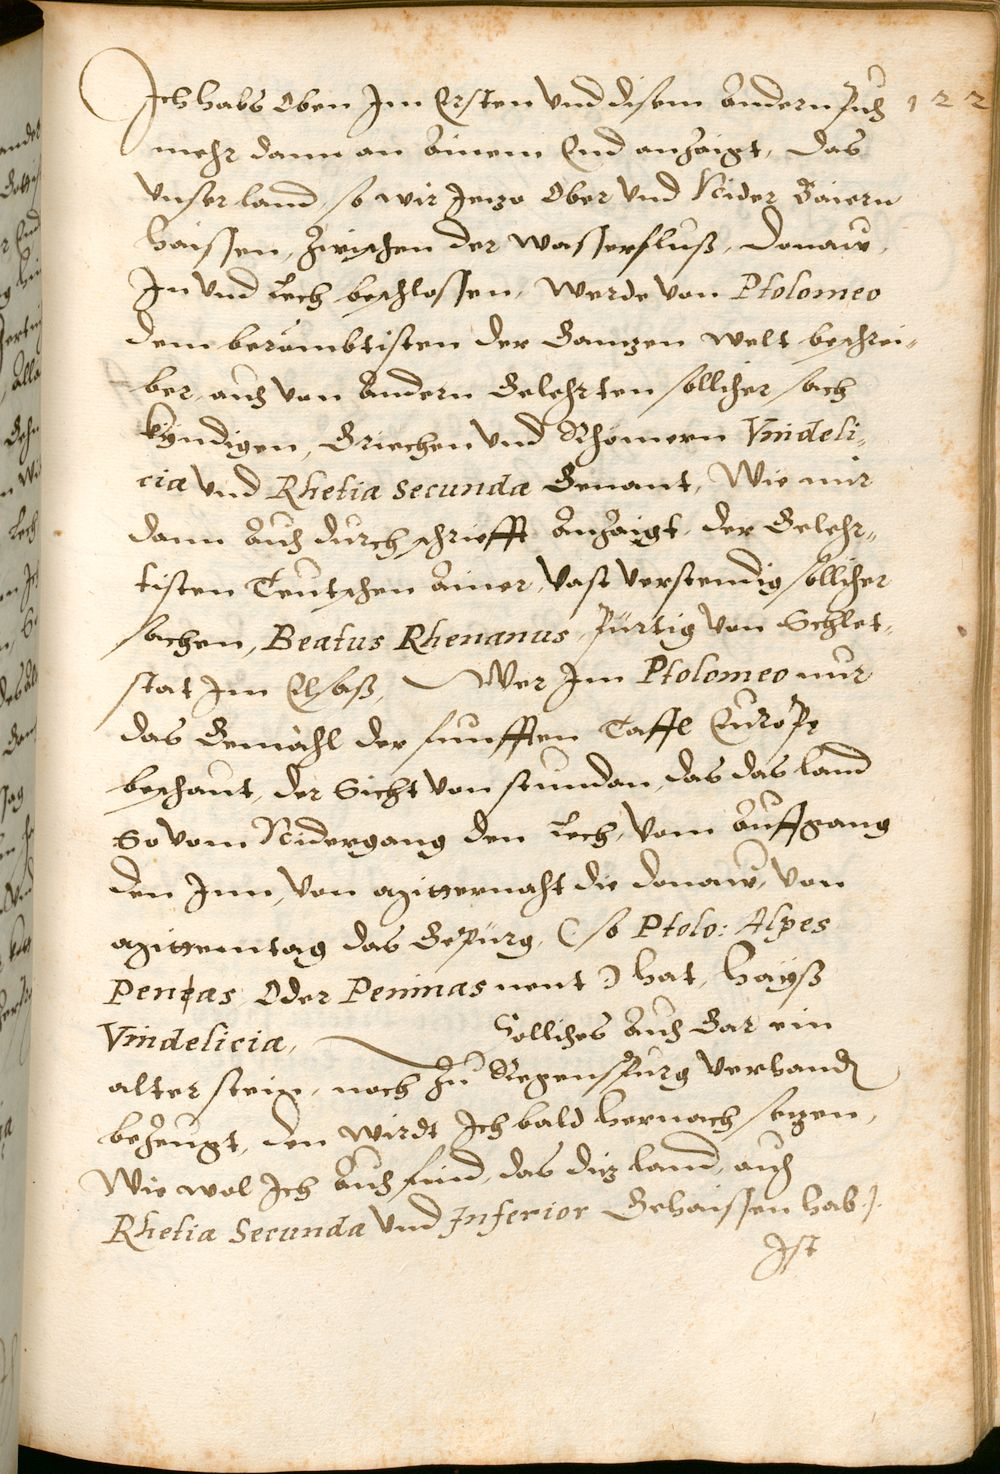 Ich habs Oben Im Ersten Vnd disem Andern Puch 122
mehr dann an Ainem End anzaigt, das
Vnser land, so wir Jenzo Ober Vnd Nider Baiern
haissen, Zwischen der wasserfluß, Donaw,
In Vnd Lech beschlossen, werde Von Ptolomeo
dem berümbtisten der Ganzen welt beschrei-
ber, auch Von Andern Gelehrten sollicher sach
kündigen, Griechen Vnd Rhömern Vindeli-
cia Vnd Rhetia secunda Genant, Wie mir
dann Auch durch schriefft Anzaigt, der Gelehr-
tisten Teutschen Ainer, Vast Verstendig söllicher
sachen, Beatus Rhenanus, Pürtig Von Schlet-
stat Im Elsaß, Wer Im Ptolomeo nur
das Gemähl der funfften Taffl Europe
beschaut, der Sicht Von stundan, das das land
So Vom Nidergang den Lech, Vom Auffgang
den Inn, Von Mitternaht die Donaw, Von
Mittemtag das Gepürg, (so Ptolo: Alpes
Penas Oder Peninas nent) hat, hayß
Vindelicia, Solliches Auch Gar ein
alter stein, noch Zu Regenspurg Verhandn
beZeugt, den wirdt Ich bald hernach sezen,
Wie wol Ich Auch find, das diz land, auch
Rhetia Secunda Vnd Inferior Gehaissen hab.
Ist